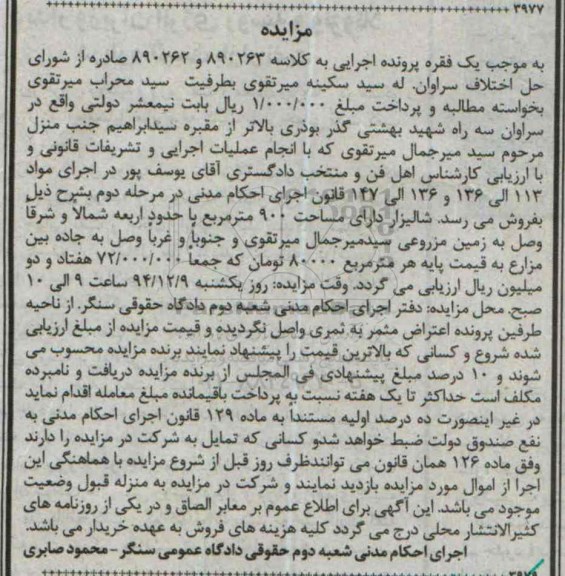 ۳۹۷۷
مزایده
به موجب یک فقره پرونده اجرایی به کلاسه ۸۹۰۲۶۳ و ۸۹۰۲۶۲ صادره از شورای
حل اختلاف سراوان. له سید سکینه میرتقوی بطرفیت سید محراب میرتقوی
بخواسته مطالبه و پرداخت مبلغ ۱/۰۰۰/۰۰۰ ریال بابت نیمعشر دولتی واقع در
سراوان سه راه شهید بهشتی گذر بوذری بالاتر از مقبره سیدابراهیم جنب منزل
مرحوم سید میرجمال میرتقوی که با انجام عملیات اجرایی و تشریفات قانونی و
با ارزیابی کارشناس اهل فن و منتخب دادگستری آقای یوسف پور در اجرای مواد
۱۱۳ الی ۱۳۶ و ۱۳۶ الی ۱۴۷ قانون اجرای احکام مدنی در مرحله دوم بشرح ذیل
بفروش می رسد. شالیزار دارای مساحت ۹۰۰ مترمربع با حدود اربعه شمالاً و شرقاً
وصل به زمین مزروعی سیدمیرجمال میرتقوی و جنوباً و غرباً وصل به جاده بین
مزارع به قیمت پایه هر مترمربع ۸۰۰۰۰ تومان که جمعاً ۷۲/۰۰۰/۰۰۰ هفتاد و دو
میلیون ریال ارزیابی می گردد. وقت مزایده: روز یکشنبه ۹۴/۱۲/۹ ساعت ۹ الی ۱۰
صبح. محل مزایده: دفتر اجرای احکام مدنی شعبه دوم دادگاه حقوقی سنگر. از ناحیه
طرفین پرونده اعتراض مثمر به ثمری واصل نگردیده و قیمت مزایده از مبلغ ارزیابی
شده شروع و کسانی که بالاترین قیمت را پیشنهاد نمایند برنده مزایده محسوب می
شوند و ۱۰ درصد مبلغ پیشنهادی فی المجلس از برنده مزایده دریافت و نامبرده
مکلف است حداکثر تا یک هفته نسبت به پرداخت باقیمانده مبلغ معامله اقدام نماید
در غیر اینصورت ده درصد اولیه مستنداً به ماده ۱۲۹ قانون اجرای احکام مدنی به
نفع صندوق دولت ضبط خواهد شدو کسانی که تمایل به شرکت در مزایده را دارند
وفق ماده ۱۲۶ همان قانون می توانندظرف روز قبل از شروع مزایده با هماهنگی این
اجرا از اموال مورد مزایده بازدید نمایند و شرکت در مزایده به منزله قبول وضعیت
موجود می باشد. این آگهی برای اطلاع عموم بر معابر الصاق و در یکی از روزنامه های
کثیرالانتشار محلی درج می گردد کلیه هزینه های فروش به عهده خریدار می باشد.
اجرای احکام مدنی شعبه دوم حقوقی دادگاه عمومی سنگر - محمود صابری